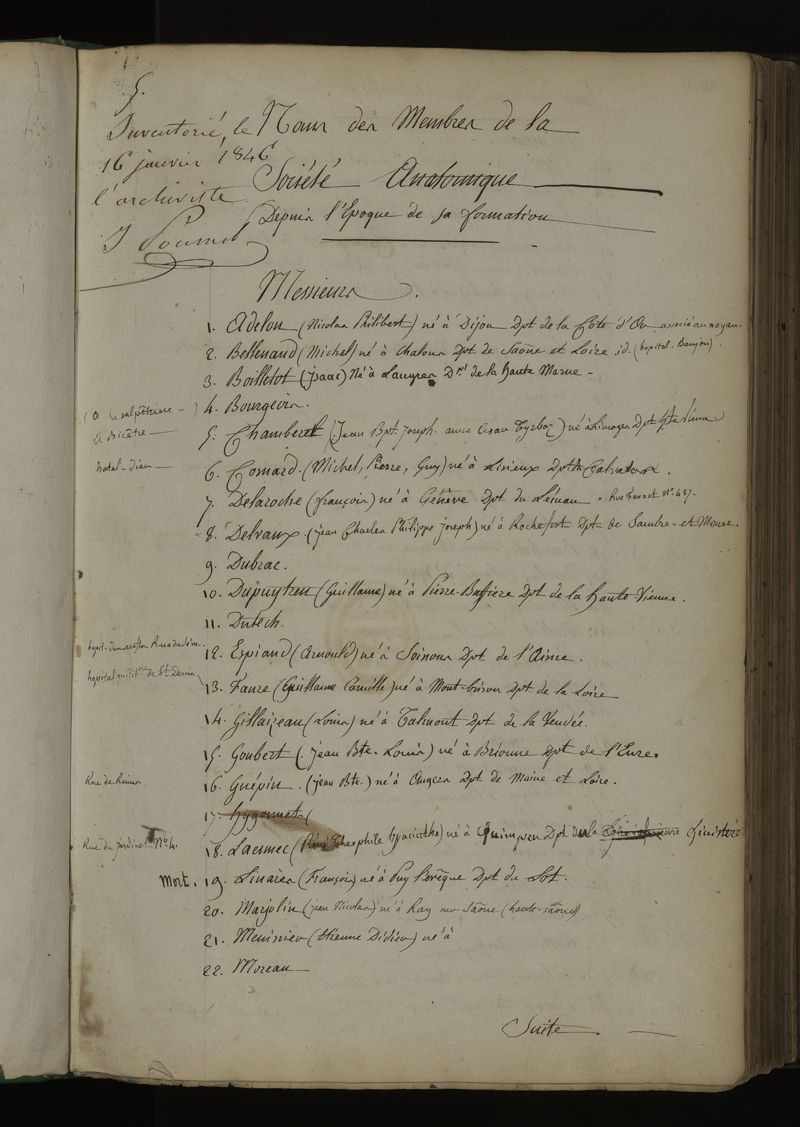 5.
Inventorié, le
16 janvier 1846
l'archiviste
Noms des Membres de la
Société Anatomique
Depuis l'Epoque de sa formation
Messieurs.
1. Adelon (Nicolas Philibert) né à Dijon Dpt de la Côte d'Or associé au noyau.
2. Bellenand (Michel) né à Chalons Dpt de Saône et Loire id. (hopital. Baujon).
3. Boilletot (isaac) Né à Langres Dt de la haute Marne -
(à la salpêtrière -) 4. Bourgeois.
à Bicêtre — 5. Chamberet (Jean Bpt. Joseph. anne Cesar Tyrbas) né à Limoges Dpt hte Vienne.
hotel-dieu — 6. Cornard. (Michel, Pierre, Guy) né à Lisieux Dpt Calvados.
7. Delaroche (françois) né à Genève Dpt du Léman. Rue favart No 487.
8. Delvaux (jean Charles Philippe joseph) né à Rochefort Dpt de Sambre-et Meuse.
9. Dubrac.
10. Dupuytren (Guillaume) né à Pierre-Buffiere Dpt de la haute Vienne.
11. Dutech.
12. Espiaud (Arnould) né à Soissons Dpt de l'Aisne.
hopital milit.re de St Denis 13. Faure (Guillaume Camille) né à Mont-brison Dpt de la Loire
14. Gillaizeau (Louis) né à Talmont Dpt de la Vendée.
15. Goubert (jean Bte. Louis) né à Brionne Dpt de l'Eure
Rue de Reims 16. Guépin. (jean Bte.) né à Angers Dpt de Maine et Loire.
17. hygonnet (
Rue du jardinet No 4. 18. Laennec (René Théophile hyacinthe) né à Quimper Dpt de la Loire inférieure Finistère
Mort. 19. Linares (François) né à Puy l'evêque Dpt du Lot.
20. Marjolin (jean Nicolas) né à Ray sur Saône (haute-saône)
21. Meunier (Etienne Didier) né à
22. Moreau —
Suite